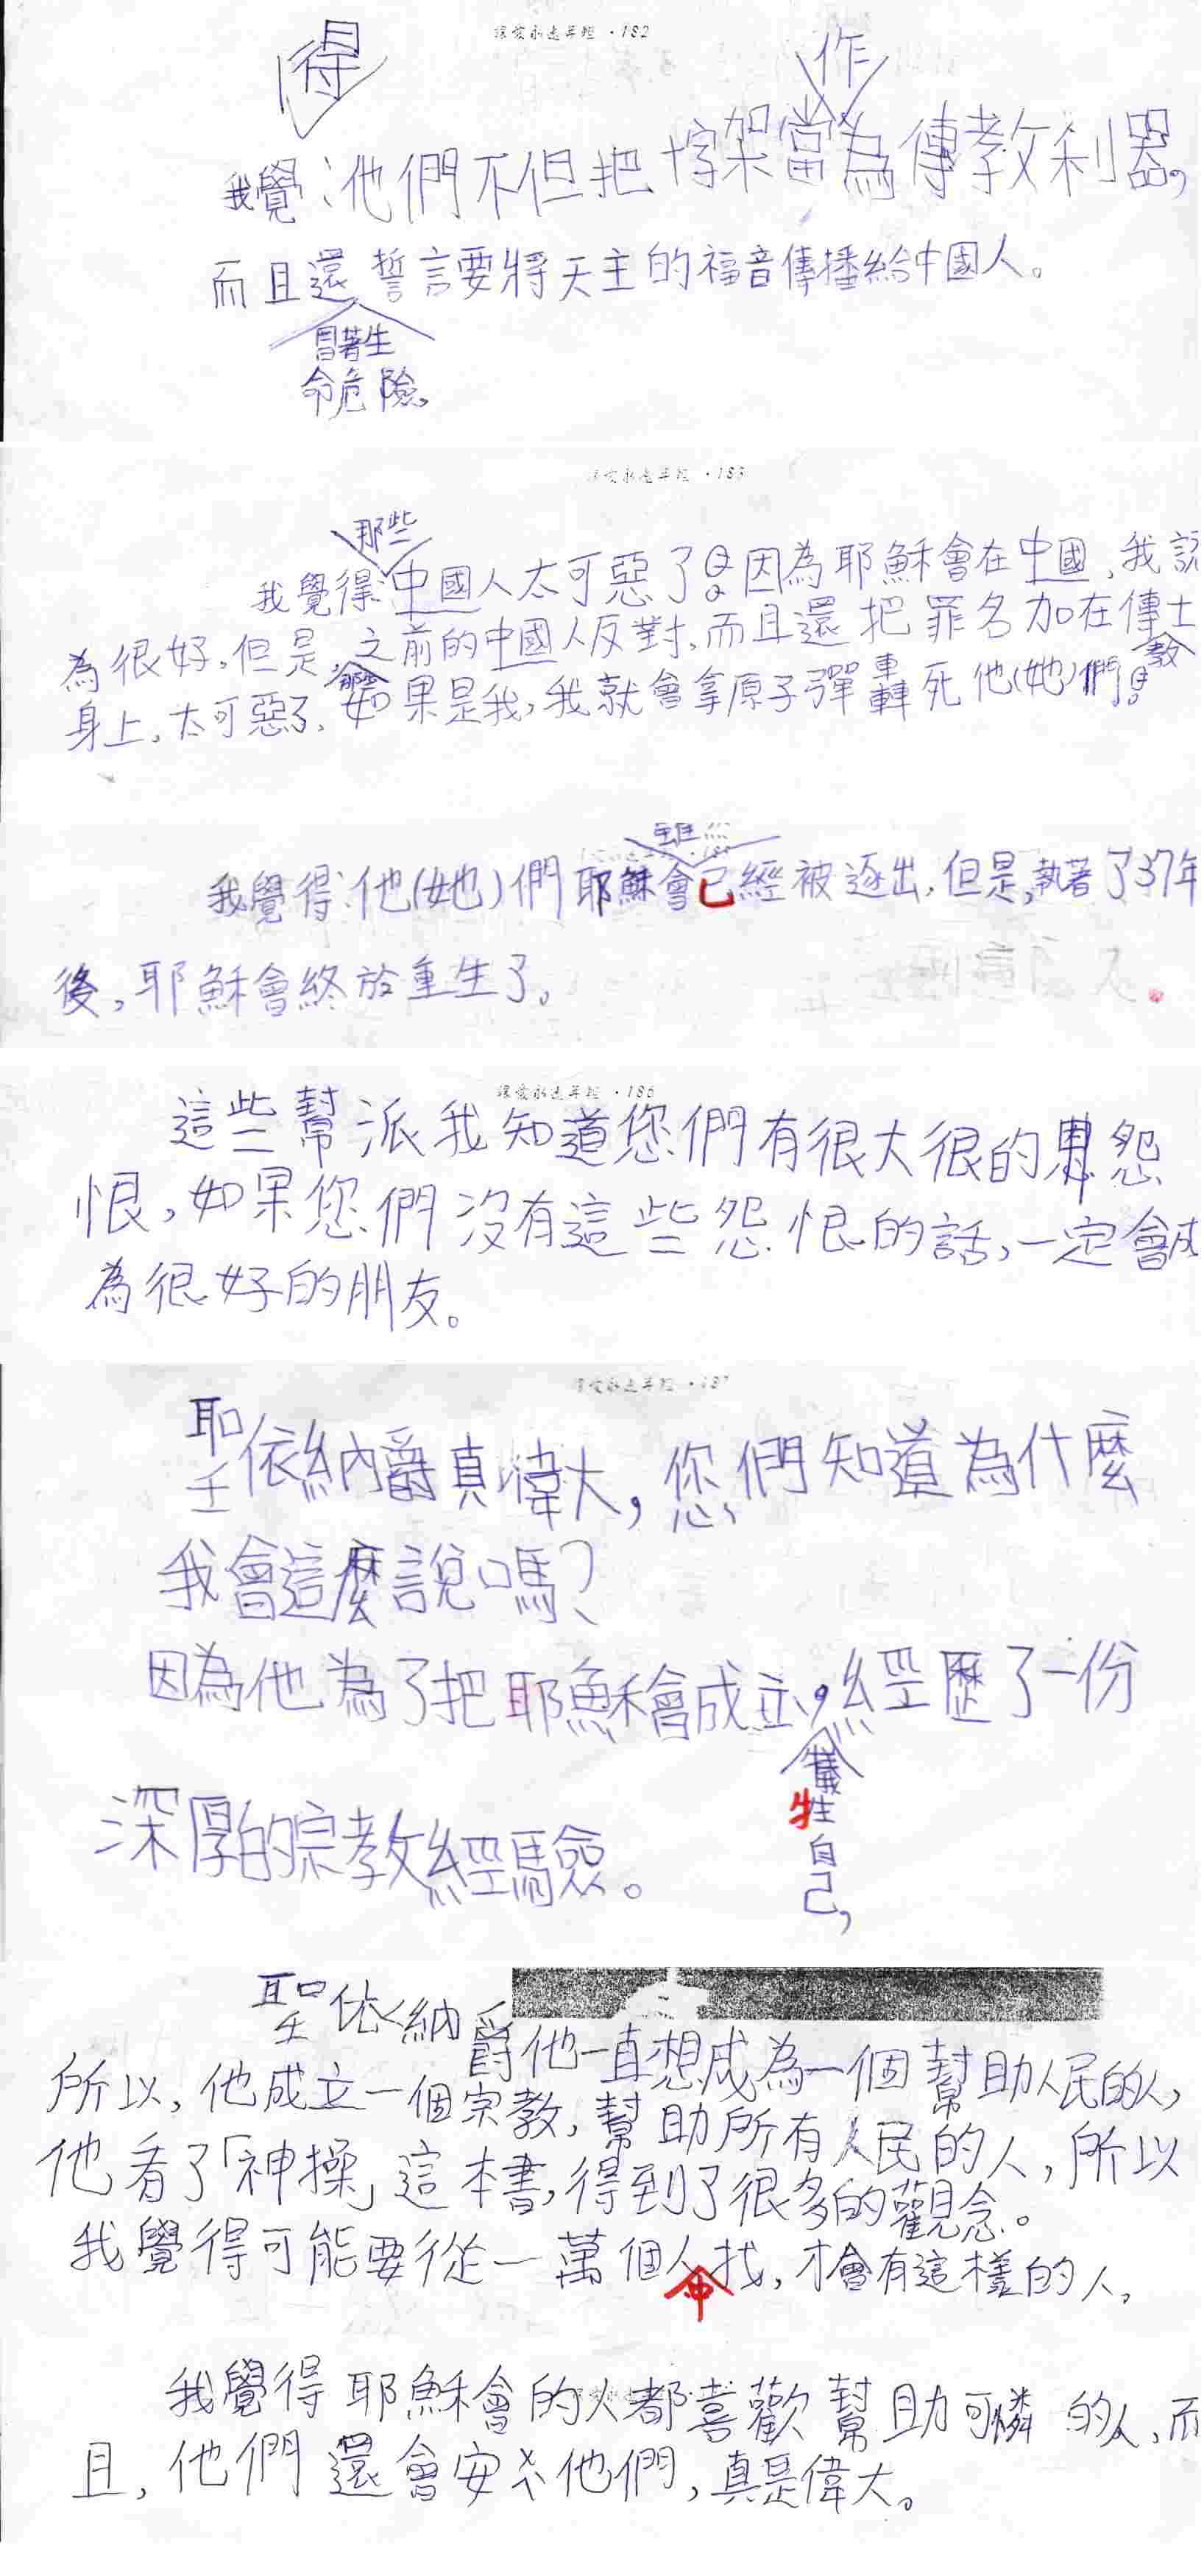 讓愛永遠年輕 ·182
得
作
我覺:他們不但把十字架當為傳教利器,
而且還誓言要將天主的福音傳播給中國人。
冒著生
命危險,
讓愛永遠年輕 ·183
那些
我覺得:中國人太可惡了!因為耶穌會在中國,我認
為很好,但是,之前的中國人反對,而且還把罪名加在傳士
教
身上,太可惡了,如果是我,我就會拿原子彈轟死他(她)們!
雖然
我覺得:他(她)們耶穌會已經被逐出,但是,執著了37年
後,耶穌會終於重生了。
讓愛永遠年輕 ·186
這些幫派我知道您們有很大很的怨
恨,如果您們沒有這些怨恨的話,一定會成
為很好的朋友。
讓愛永遠年輕 ·187
聖依納爵真偉大,您們知道為什麼
我會這麼說嗎?
因為他為了把耶穌會成立,經歷了一份
犧
牲
自
己,
深厚的宗教經驗。
聖依納爵他一直想成為一個幫助人民的人,
所以,他成立一個宗教,幫助所有人民的人,所以
他看了「神操」這本書,得到了很多的觀念。
我覺得可能要從一萬個人找,才會有這樣的人。
中
我覺得耶穌會的人都喜歡幫助可憐的人,而
且,他們還會安他們,真是偉大。